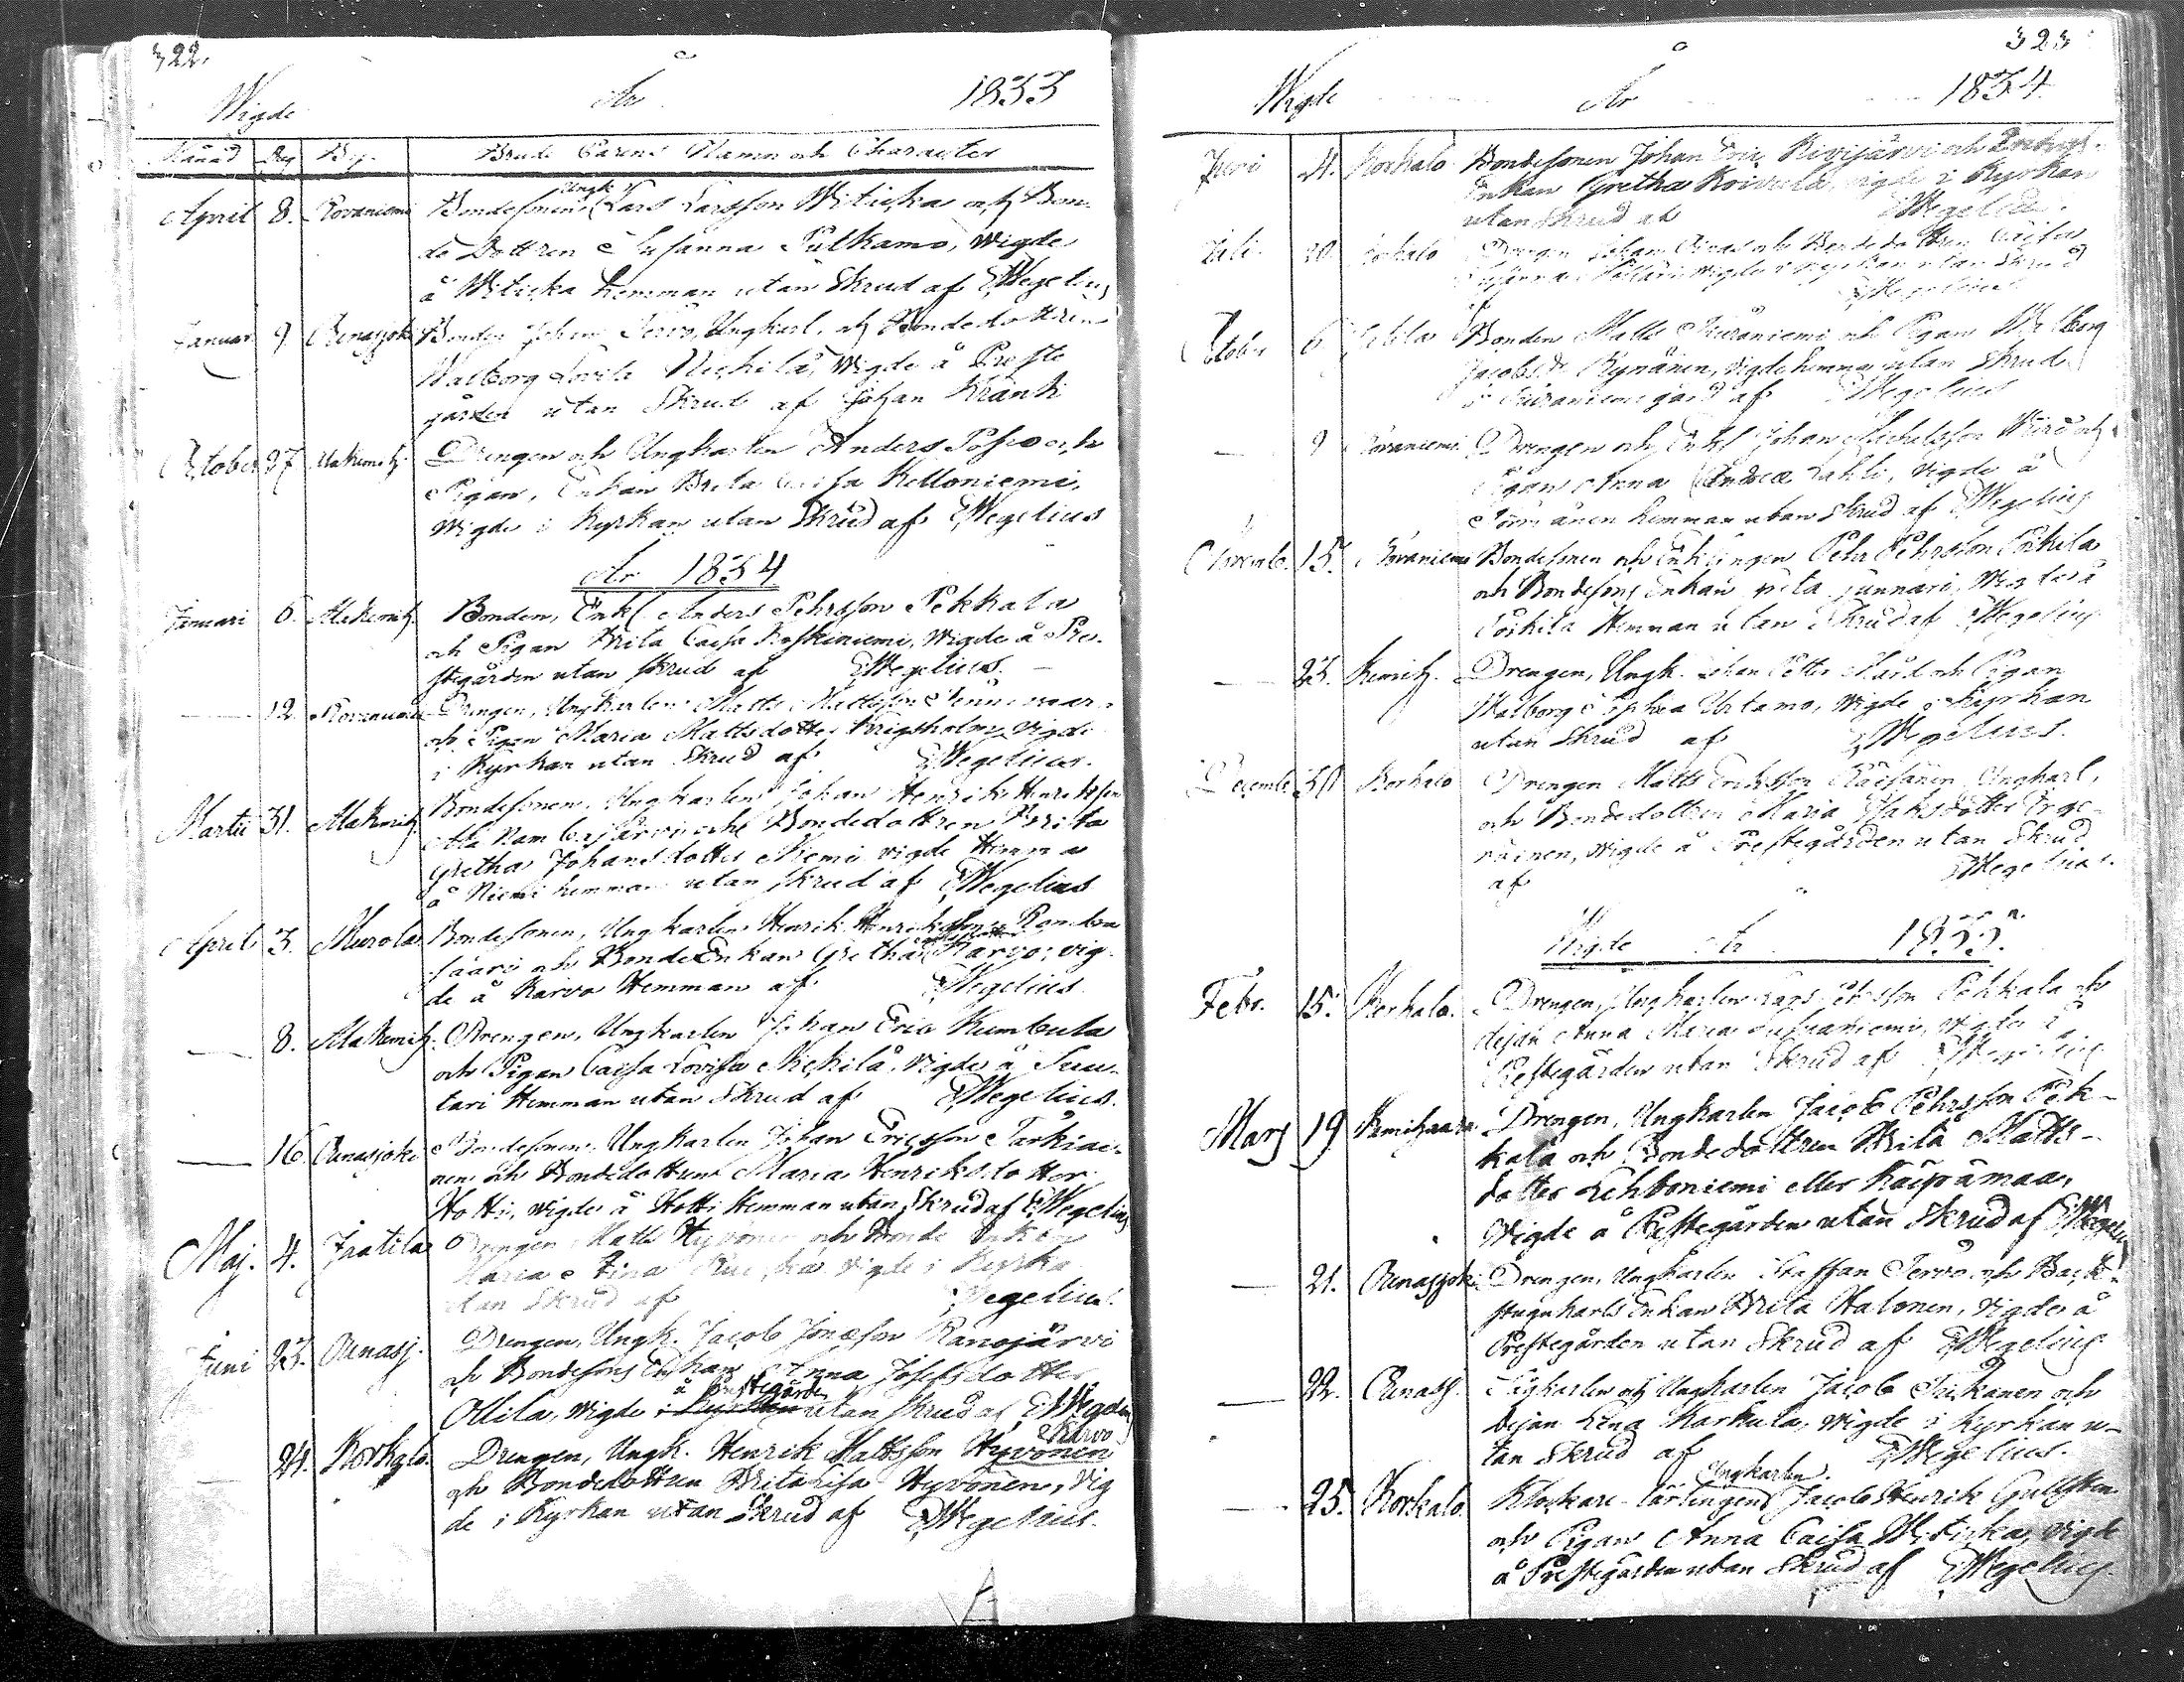 322.
Wigde År 1833
Månad Dag By. Brude Parens Namn och Character
April 8. Rovaniemi Bondesonen Ungk. Lars Larsson Witicka och Bon-
de Dottren Susanna Pulkamo, Wigde
å Witicka hemman utan Skrud af EWegelius
Januar 9 Ounasjoki Bonden Johan Tervo, Ungkarl, och Bondedottren
Walborg Lovisa Nickilä, Wigde å Preste
gården utan Skrud af Johan Kränk
October 27 Alakemih. Drengen och Ungkarlen Anders Posio och
Pigan, Enkan Brita Caisa Kelloniemi,
Wigde i Kyrkan utan Skrud af EWegelius
År 1834
Januari 6. Alakemih. Bonden, Enkl. Anders Pehrsson Pekkala
och Pigan Brita Caisa Koskiniemi, Wigde å Pre-
stegården utan skrud af EWegelius.
— 12. Rovaniemi Drengen, Ungkarlen Matts Mattsson
och Pigan Maria Mattsdotter Krigsholm, Vigde
i Kyrkan utan Skrud af EWegelius.
Martii 31. Alakemih Bondesonen, Ungkarlen Johan Henrik Henriksson
Ala Nambajärvi och Bondedottren Brita
Gretha Johansdotter Niemi vigde Hemma
å Niemi hemman utan skrud af EWegelius
April 3. Murola Bondesonen, Ungkarlen Henrik Henriksson Ronka
saari och BondeEnkan Gretha Karvo; vig-
de å Karvo Hemman af EWegelius
— 8. Alakemih. Drengen, Ungkarlen Johan Eric Kumbula
och Pigan Caisa Lovisa Nickilä, Vigde å Suu-
tari Hemman utan Skrud af EWegelius.
— 16. Ounasjoki Bondesonen, Ungkarlen Johan Ericsson Tarkiai-
nen och Bondedottren Maria Henriksdotter
Hotti, vigde å Hotti Hemman utan Skrud af EWegelius
Maj. 4. Jratila Drengen Matts Hyvönen och Bonde Enkan
Maria Stina vigde i Kyrka
utan Skrud af Wegelius.
Juni 23. Ounasj. Drengen, Ungk. Jacob Jonasson Ranojärvi
och Bondesons Enkan Anna Josefsdotter
Ollila, Wigde i Kyrkan å Prestegården utan Skrud af EWegelius
— 24. Korkalo. Drengen, Ungk. Henrik Mattsson Hyvönen Karvo
och Bondedottren Brita Lisa Hyvönen, Vig
de i Kyrkan utan Skrud af EWegelius.
323
Wigde År 1834
Juni 24. Korkalo Bondesonen Johan Eric Kivijärvi och
Enkan Gretha Koivula, vigde i Kyrkan
utan Skrud af EWegelius.
Juli 20. Korkalo Drengen Johan och Bondedottren Caisa
Susanna wigde i Kyrkan utan Skrud
af EWegelius
October 6. Bonden Matts Kuraniemi och Pigan Walborg
Jacobsdr Kynänen, vigde hemma utan Skrud
å gård af EWegelius
— 9 Rovaniemi. Drengen och Enkl. Johan Michelsson Wiro och
Pigan Anna Andrea Lahti, Vigde å
hemman utan Skrud af EWegelius
Novemb. 15. Rovaniemi Bondesonen och Enklingen Pehr Pehrsson Poikila
och Bondesons Enkan Brita Junnari, Wigde å
Poikila Hemman utan Skrud af EWegelius
— 23. Kemih. Drengen, Ungk. Johan Petter Mård och Pigan
Walborg Sophia Urtamo, Wigde i Kyrkan
utan Skrud af EWegelius.
Decemb. 30 Korkalo Drengen Matts Ericsson Räisänen, Ungkarl,
och Bondedottren Maria Isaksdotter
wigde å Prestegården utan Skrud
af EWegelius.
Wigde År 1835.
Febr. 15. Korkalo. Drengen, Ungkarlen Lars Pehrsson Pekkala och
dejan Anna Maria wigde i
Prestegården utan Skrud af EWegelius
Marj 19 Kemihaara Drengen, Ungkarlen Jacob Pehrsson Pek-
kala och Bondedottren Brita Matts-
dotter Lehtoniemi eller Käyrämaa,
Wigde å Prestegården utan Skrud af EWegelius
— 21. Ounasjoki Drengen, Ungkarlen Staffan Tervo och Back-
stugukarls Enkan Brita Halonen, Vigde å
Prestegården utan Skrud af EWegelius
— 22. Ounasj. Ligkarlen och Ungkarlen Jacob Tiikanen och
dejan Lena Karkula, wigde i Kyrkan u-
tan Skrud af EWegelius.
— 25. Korkalo. Klockare-lärlingen Ungkarlen Jacob Henrik Gullsten
och Pigan Anna Caisa Witicka, Vigde
å Prestegården utan Skrud af EWegelius